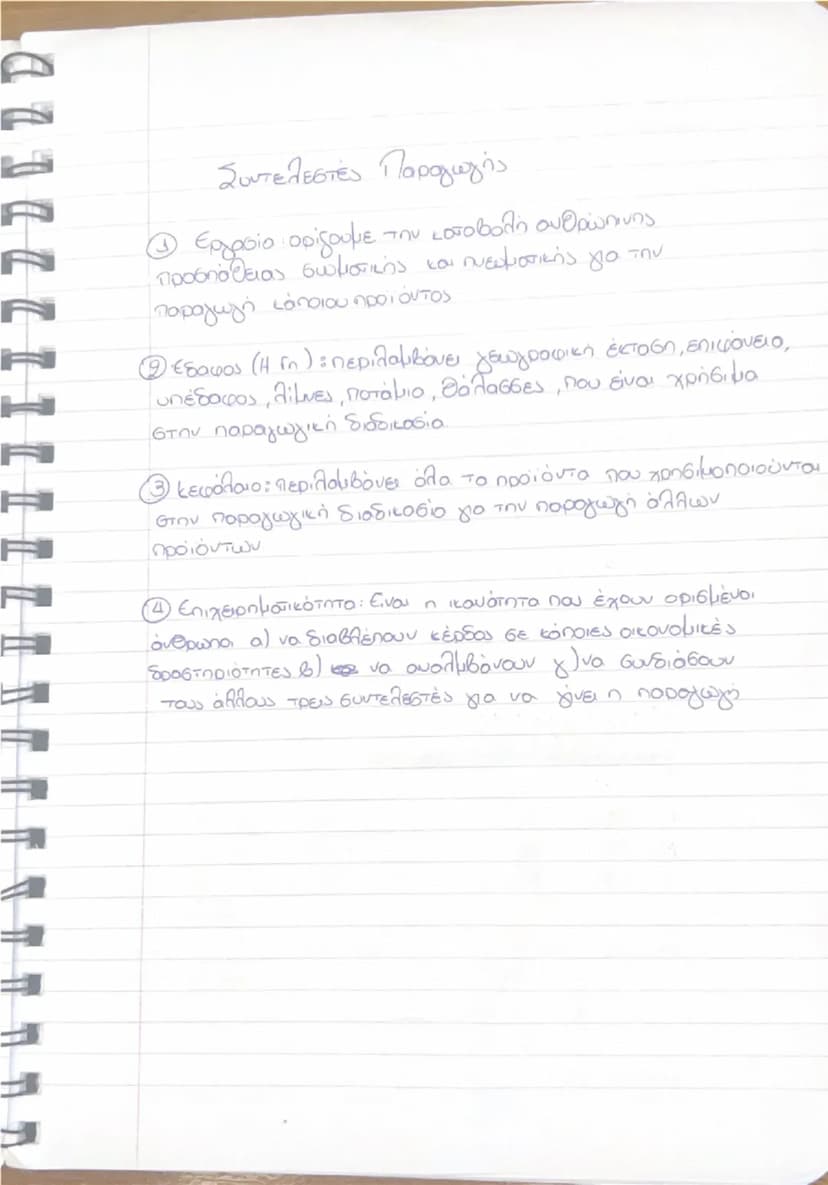 Συντελεστές Παραγωγής
① Εργασία: ορίζουμε την καταβολή ανθρώπινης
προσπάθειας σωματικής και πνευματικής για την
παραγωγή κάποιου προϊόντος
② Έδαφος (Η Γη): περιλαμβάνει γεωγραφική έκταση, επιφάνεια,
υπέδαφος, λίμνες, ποτάμια, θάλασσες, που είναι χρήσιμα
στην παραγωγική διαδικασία
③ κεφάλαιο: περιλαμβάνει όλα τα προϊόντα που χρησιμοποιούνται
στην παραγωγική διαδικασία για την παραγωγή άλλων
προϊόντων
④ Επιχειρηματικότητα: Είναι η ικανότητα που έχουν ορισμένοι
άνθρωποι α) να διαβλέπουν κέρδος σε κάποιες οικονομικές
δραστηριότητες β) να αναλαμβάνουν γ) να συνδιάσουν
τους άλλους τρεις συντελεστές για να γίνει η παραγωγή